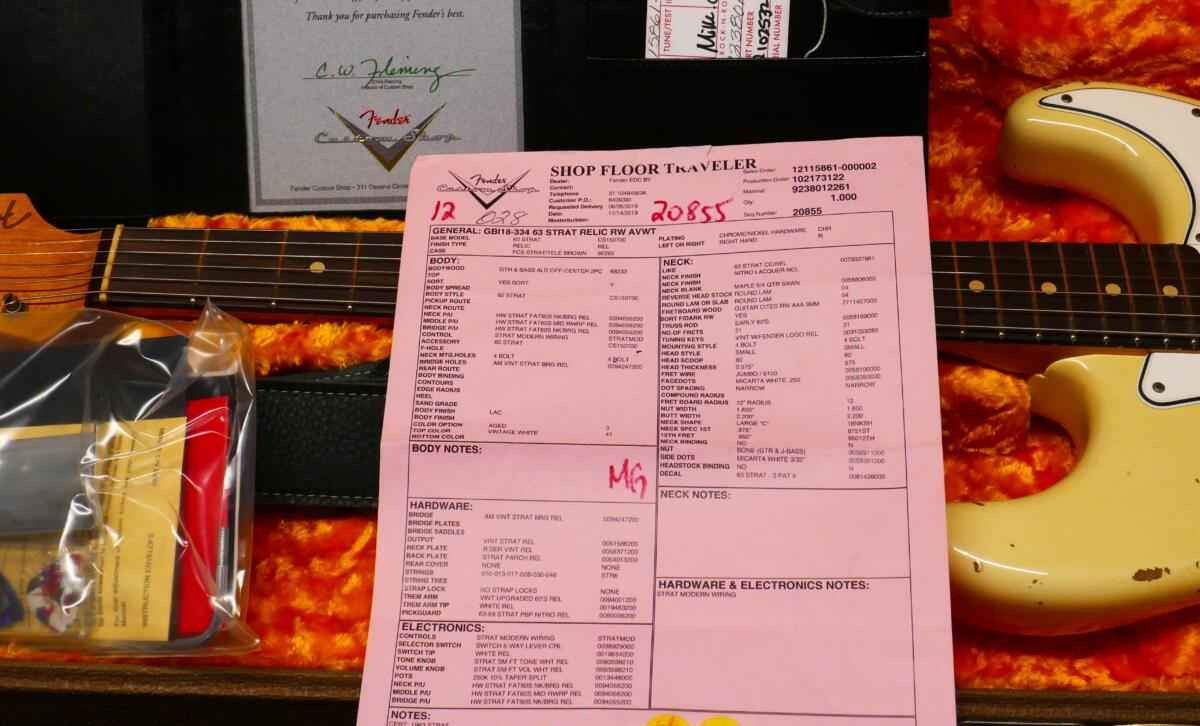 Thank you for purchasing Fender's best.
C.W. Fleming
Chris Fleming
Director of Custom Shop
Fender
Custom Shop
Fender Custom Shop • 311 Cessna Circle
15861-
TUNE/TEST
Mike
ROCK-N-RO
INSTRUCTION ENVELOPE
Fender
Custom Shop
SHOP FLOOR TRAVELER
Dealer: Fender EDC BV
Contact:
Telephone 31 104945634
Customer P.O.: 6409393
Requested Delivery 06/26/2019
Date: 11/14/2019
Masterbuilder:
Sales Order: 12115861-000002
Production Order: 102173122
Material: 9238012261
Qty: 1.000
Seq.Number 20855
12 028 20855
GENERAL: GBI18-334 63 STRAT RELIC RW AVWT
BASE MODEL 60 STRAT CS150700
FINISH TYPE RELIC REL
CASE FCS STRAT/TELE BROWN 56293
PLATING CHROME/NICKEL HARDWARE CHR
LEFT OR RIGHT RIGHT HAND R
BODY:
BODYWOOD GTR & BASS ALD OFF-CENTER 2PC 68233
TOP
SORT YES SORT Y
BODY SPREAD
BODY STYLE 60 STRAT CS150700
PICKUP ROUTE
NECK ROUTE
NECK P/U HW STRAT FAT60S NK/BRG REL 0094055200
MIDDLE P/U HW STRAT FAT60S MID RWRP REL 0094056200
BRIDGE P/U HW STRAT FAT60S NK/BRG REL 0094055200
CONTROL STRAT MODERN WIRING STRATMOD
ACCESSORY 60 STRAT CS150700
F-HOLE
NECK MTG.HOLES 4 BOLT 4 BOLT
BRIDGE HOLES AM VINT STRAT BRG REL 0094247200
REAR ROUTE
BODY BINDING
CONTOURS
EDGE RADIUS
HEEL
SAND GRADE
BODY FINISH LAC
BODY FINISH
COLOR OPTION AGED 3
TOP COLOR VINTAGE WHITE 41
BOTTOM COLOR
BODY NOTES:
MG
HARDWARE:
BRIDGE AM VINT STRAT BRG REL 0094247200
BRIDGE PLATES
BRIDGE SADDLES
OUTPUT VINT STRAT REL 0051586200
NECK PLATE R SER VINT REL 0058371200
BACK PLATE STRAT PARCH REL 0054013200
REAR COVER NONE NONE
STRINGS 010-013-017-026-036-046 STR6
STRING TREE
STRAP LOCK NO STRAP LOCKS NONE
TREM ARM VINT UPGRADED 60'S REL 0094001200
TREM ARM TIP WHITE REL 0019463200
PICKGUARD 63-69 STRAT PBP NITRO REL 0060008200
ELECTRONICS:
CONTROLS STRAT MODERN WIRING STRATMOD
SELECTOR SWITCH SWITCH 5-WAY LEVER CRL 0038929000
SWITCH TIP WHITE REL 0019554200
TONE KNOB STRAT SM FT TONE WHT REL 0093599210
VOLUME KNOB STRAT SM FT VOL WHT REL 0093598210
POTS 250K 10% TAPER SPLIT 0013446000
NECK P/U HW STRAT FAT60S NK/BRG REL 0094055200
MIDDLE P/U HW STRAT FAT60S MID RWRP REL 0094056200
BRIDGE P/U HW STRAT FAT60S NK/BRG REL 0094055200
NOTES:
CERT: 1963 STRAT
NECK:
LIKE 63 STRAT CC/REL 0079337961
NECK FINISH NITRO LACQUER NCL
NECK FINISH
NECK BLANK MAPLE 5/4 QTR SAWN 0058806000
REVERSE HEAD STOCK ROUND LAM 04
ROUND LAM OR SLAB ROUND LAM 04
FRETBOARD WOOD GUITAR CITES RW AAA 9MM 7711457000
SORT F/DARK RW YES
TRUSS ROD EARLY 60'S 0058169000
NO.OF FRETS 21 21
TUNING KEYS VINT W/FENDER LOGO REL 0091059260
MOUNTING STYLE 4 BOLT 4 BOLT
HEAD STYLE SMALL SMALL
HEAD SCOOP 60 60
HEAD THICKNESS 0.575" 575
FRET WIRE JUMBO / 6100 0058100000
FACEDOTS MICARTA WHITE .250 0058350000
DOT SPACING NARROW NARROW
COMPOUND RADIUS
FRET BOARD RADIUS 12" RADIUS 12
NUT WIDTH 1.650" 1.650
BUTT WIDTH 2.200" 2.200
NECK SHAPE LARGE "C" 18NKSH
NECK SPEC 1ST .875" 8751ST
12TH FRET .950" 95012TH
NECK BINDING NO N
NUT BONE (GTR & J-BASS) 0058911000
SIDE DOTS MICARTA WHITE 3/32" 0058351000
HEADSTOCK BINDING NO N
DECAL 63 STRAT - 3 PAT # 0061426000
NECK NOTES:
HARDWARE & ELECTRONICS NOTES:
STRAT MODERN WIRING